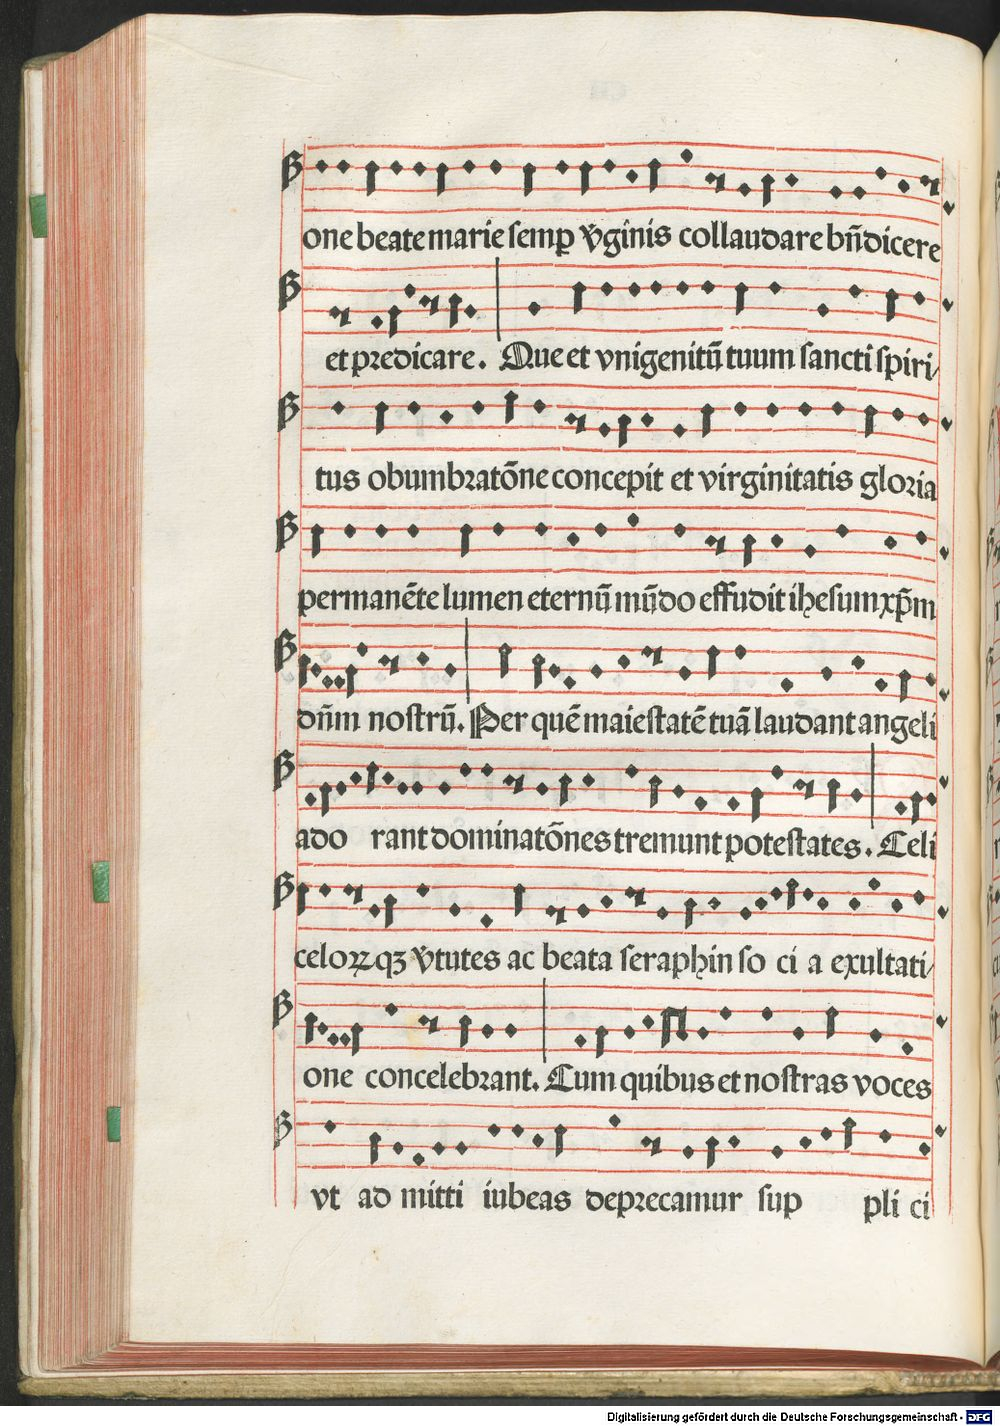 one beate marie semꝑ v̄ginis collaudare bn̄dicere
et predicare. Que et vnigenitū tuum sancti spiri/
tus obumbratōne concepit et virginitatis gloria
permanēte lumen eternū mūdo effudit ihesum xp̄m
dn̄m nostrū. Per quē maiestatē tuā laudant angeli
ado rant dominatōnes tremunt potestates. Celi
celoꝝ qꝫ v̄tutes ac beata seraphin so ci a exultati/
one concelebrant. Cum quibus et nostras voces
vt ad mitti iubeas deprecamur sup pli ci
Digitalisierung gefördert durch die Deutsche Forschungsgemeinschaft - DFG